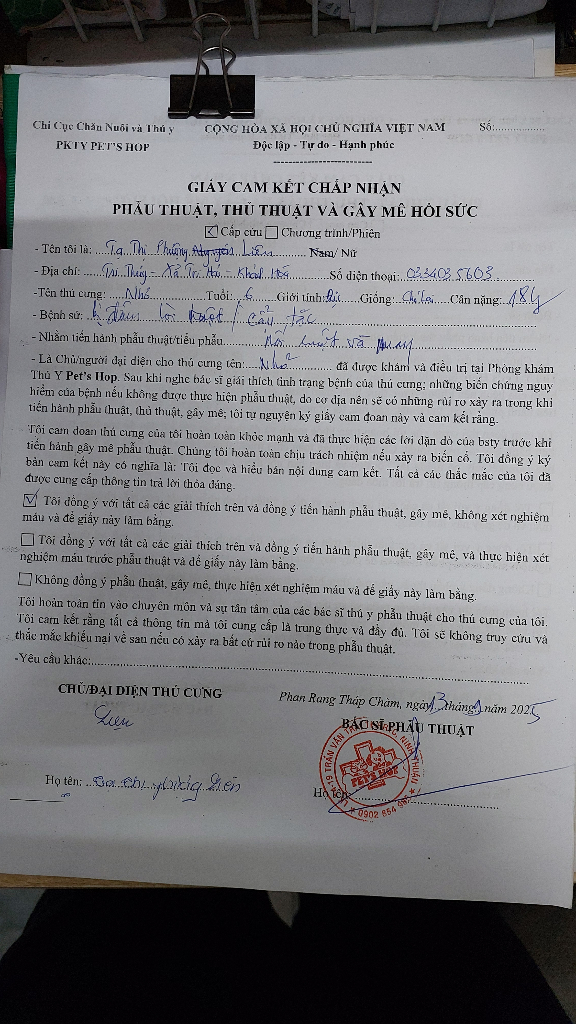 Chi Cục Chăn Nuôi và Thú y CỘNG HÒA XÃ HỘI CHỦ NGHĨA VIỆT NAM Số:
PKTY PET'S HOP Độc lập - Tự do - Hạnh phúc
GIẤY CAM KẾT CHẤP NHẬN
PHẪU THUẬT, THỦ THUẬT VÀ GÂY MÊ HỒI SỨC
Cấp cứu Chương trình/Phiên
- Tên tôi là: Tạ Thị Phương Liên Nam/ Nữ
- Địa chỉ: - Xã - Khánh Số điện thoại: 0334035603
-Tên thú cưng: Nhỏ Tuổi: 6 Giới tính: Giống: Cân nặng: 18
- Bệnh sử: lồi tắc
- Nhằm tiến hành phẫu thuật/tiểu phẫu và
- Là Chủ/người đại diện cho thú cưng tên: Nhỏ đã được khám và điều trị tại Phòng khám
Thú Y Pet's Hop. Sau khi nghe bác sĩ giải thích tình trạng bệnh của thú cưng; những biến chứng nguy
hiểm của bệnh nếu không được thực hiện phẫu thuật, do cơ địa nên sẽ có những rủi ro xảy ra trong khi
tiến hành phẫu thuật, thủ thuật, gây mê; tôi tự nguyện ký giấy cam đoan này và cam kết rằng.
Tôi cam đoan thú cưng của tôi hoàn toàn khỏe mạnh và đã thực hiện các lời dặn dò của bsty trước khi
tiến hành gây mê phẫu thuật. Chúng tôi hoàn toàn chịu trách nhiệm nếu xảy ra biến cố. Tôi đồng ý ký
bản cam kết này có nghĩa là: Tôi đọc và hiểu bản nội dung cam kết. Tất cả các thắc mắc của tôi đã
được cung cấp thông tin trả lời thỏa đáng.
Tôi đồng ý với tất cả các giải thích trên và đồng ý tiến hành phẫu thuật, gây mê, không xét nghiệm
máu và để giấy này làm bằng.
Tôi đồng ý với tất cả các giải thích trên và đồng ý tiến hành phẫu thuật, gây mê, và thực hiện xét
nghiệm máu trước phẫu thuật và để giấy này làm bằng.
Không đồng ý phẫu thuật, gây mê, thực hiện xét nghiệm máu và để giấy này làm bằng.
Tôi hoàn toàn tin vào chuyên môn và sự tận tâm của các bác sĩ thú y phẫu thuật cho thú cưng của tôi.
Tôi cam kết rằng tất cả thông tin mà tôi cung cấp là trung thực và đầy đủ. Tôi sẽ không truy cứu và
thắc mắc khiếu nại về sau nếu có xảy ra bất cứ rủi ro nào trong phẫu thuật.
-Yêu cầu khác:
CHỦ/ĐẠI DIỆN THÚ CƯNG Phan Rang Tháp Chàm, ngày 13 tháng năm 2025
BÁC SĨ PHẪU THUẬT
Liên
PET'S HOP
Họ tên: Tạ Thị Phương Liên Họ tên: